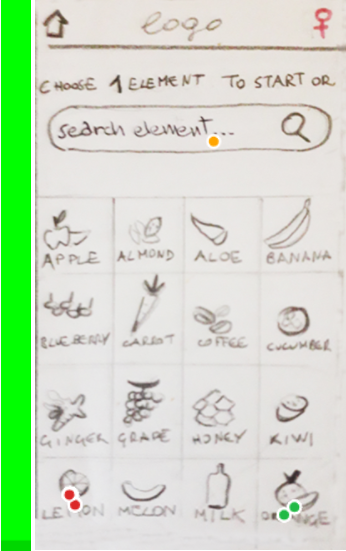 logo
CHOOSE 1 ELEMENT TO START OR
search element...
APPLE ALMOND ALOE BANANA
BLUEBERRY CARROT COFFEE CUCUMBER
GINGER GRAPE HONEY KIWI
LEMON MELON MILK ORANGE